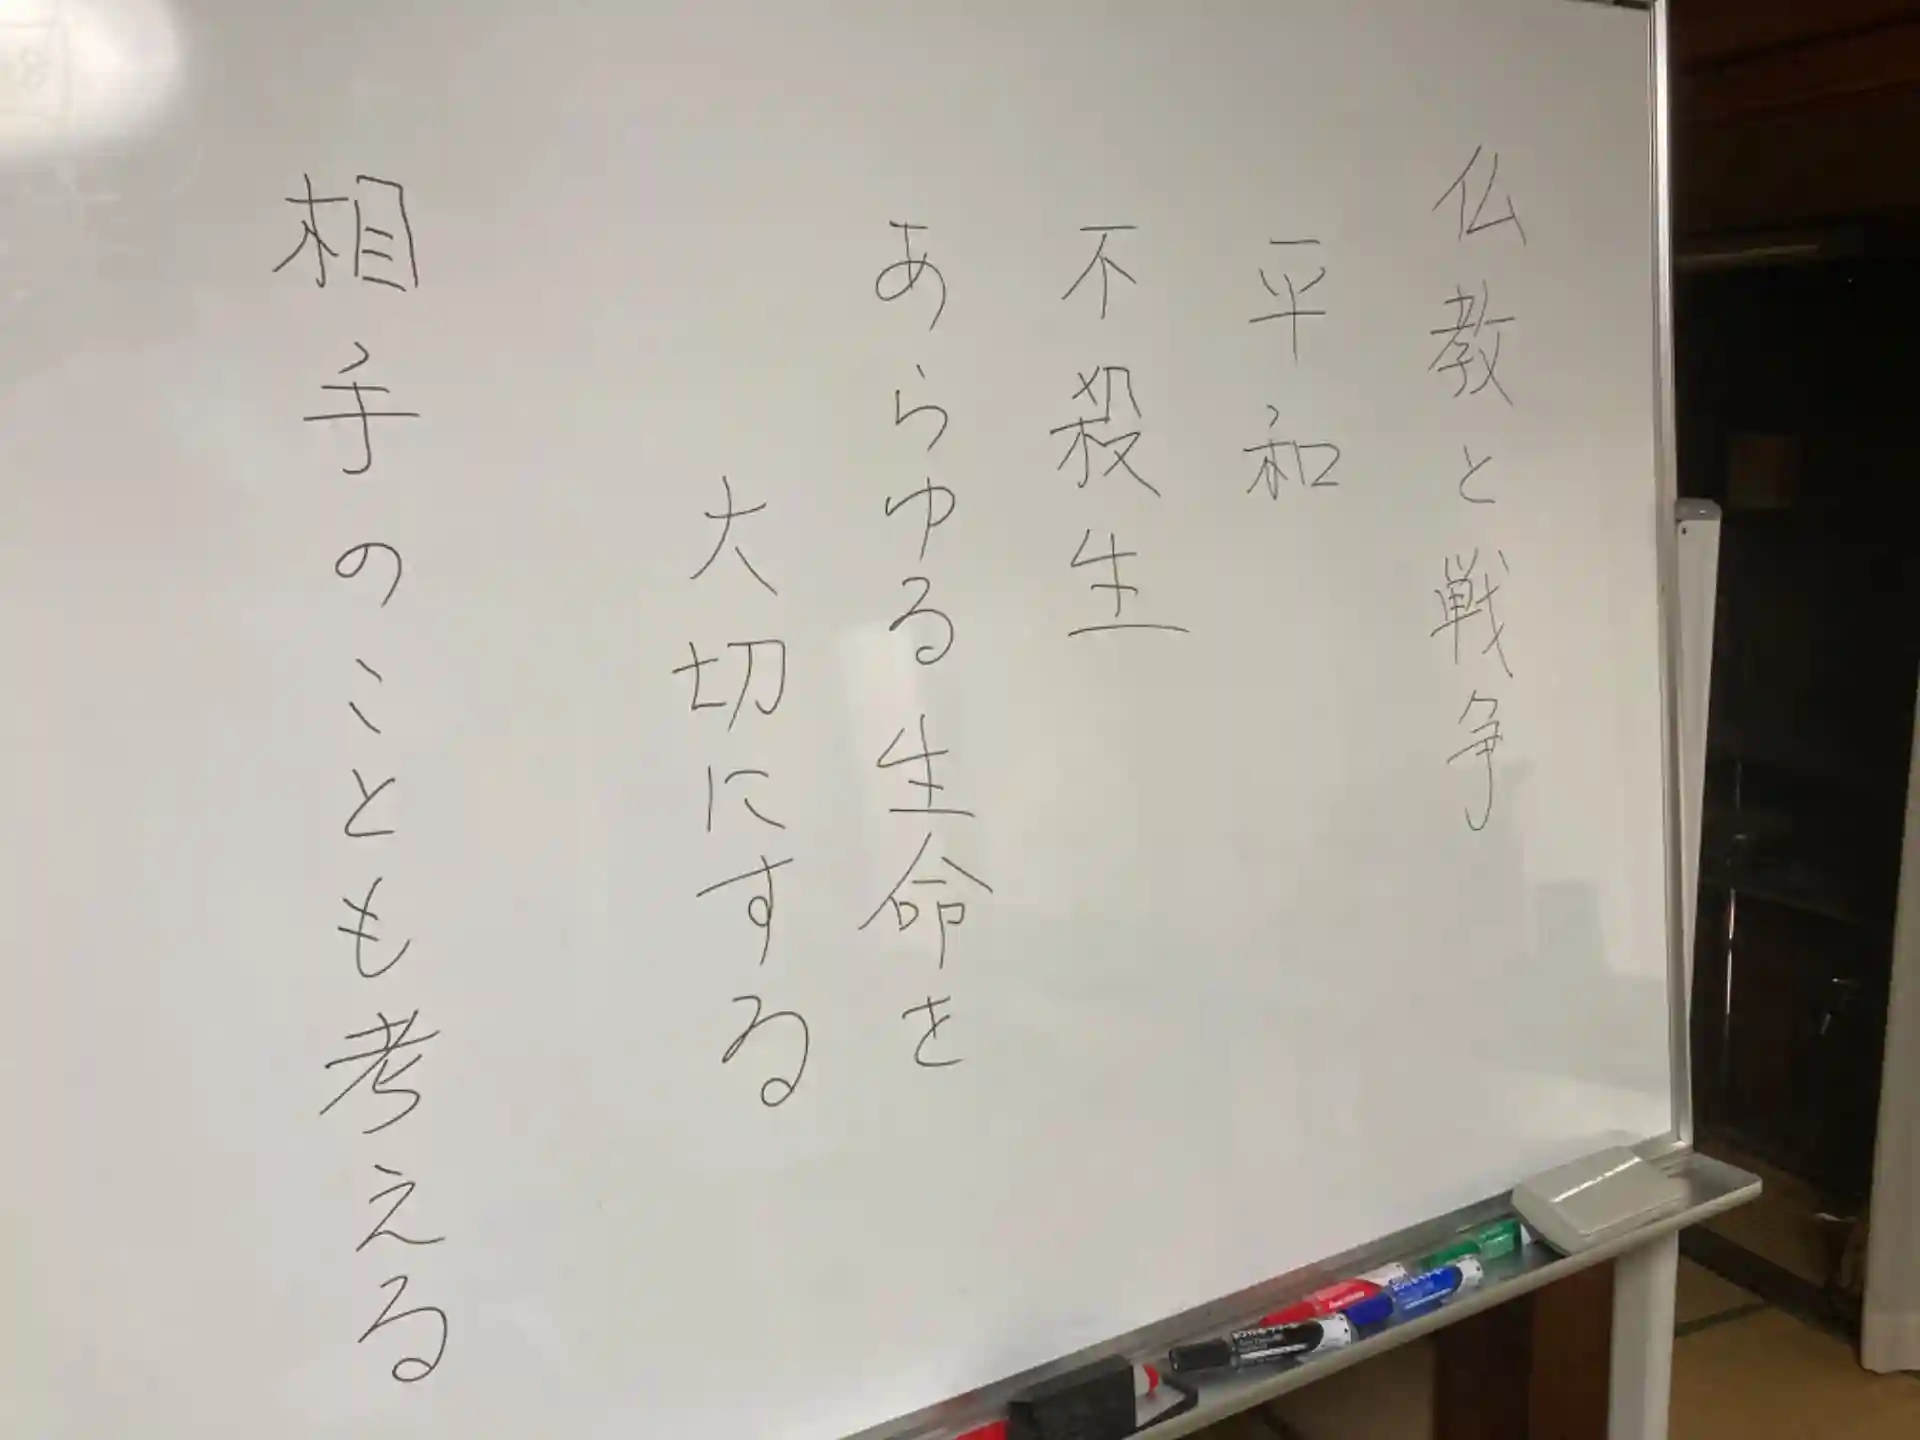 仏教と戦争
平和
不殺生
あらゆる生命を
大切にする
相手のことも考える